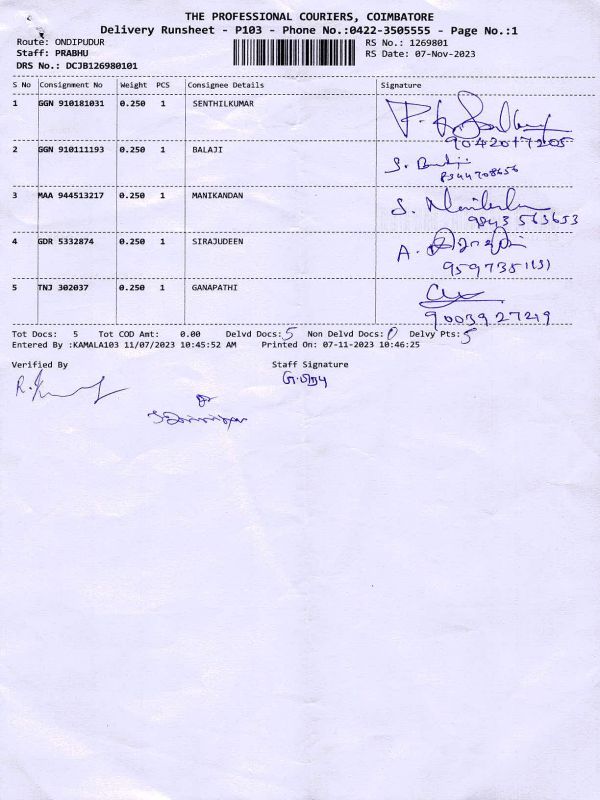 THE PROFESSIONAL COURIERS, COIMBATORE
Delivery Runsheet - P103 - Phone No.:0422-3505555 - Page No.:1
Route: ONDIPUDUR RS No.: 1269801
Staff: PRABHU RS Date: 07-Nov-2023
DRS No.: DCJB126980101
S No Consignment No Weight PCS Consignee Details Signature
1 GGN 910181031 0.250 1 SENTHILKUMAR
9042017205
2 GGN 910111193 0.250 1 BALAJI S. Balaji
8344708656
3 MAA 944513217 0.250 1 MANIKANDAN S. Manikandan
9843 563653
4 GDR 5332874 0.250 1 SIRAJUDEEN A.
9597351131
5 TNJ 302037 0.250 1 GANAPATHI
9003927219
Tot Docs: 5 Tot COD Amt: 0.00 Delvd Docs: 5 Non Delvd Docs: 0 Delvy Pts: 5
Entered By :KAMALA103 11/07/2023 10:45:52 AM Printed On: 07-11-2023 10:46:25
Verified By Staff Signature